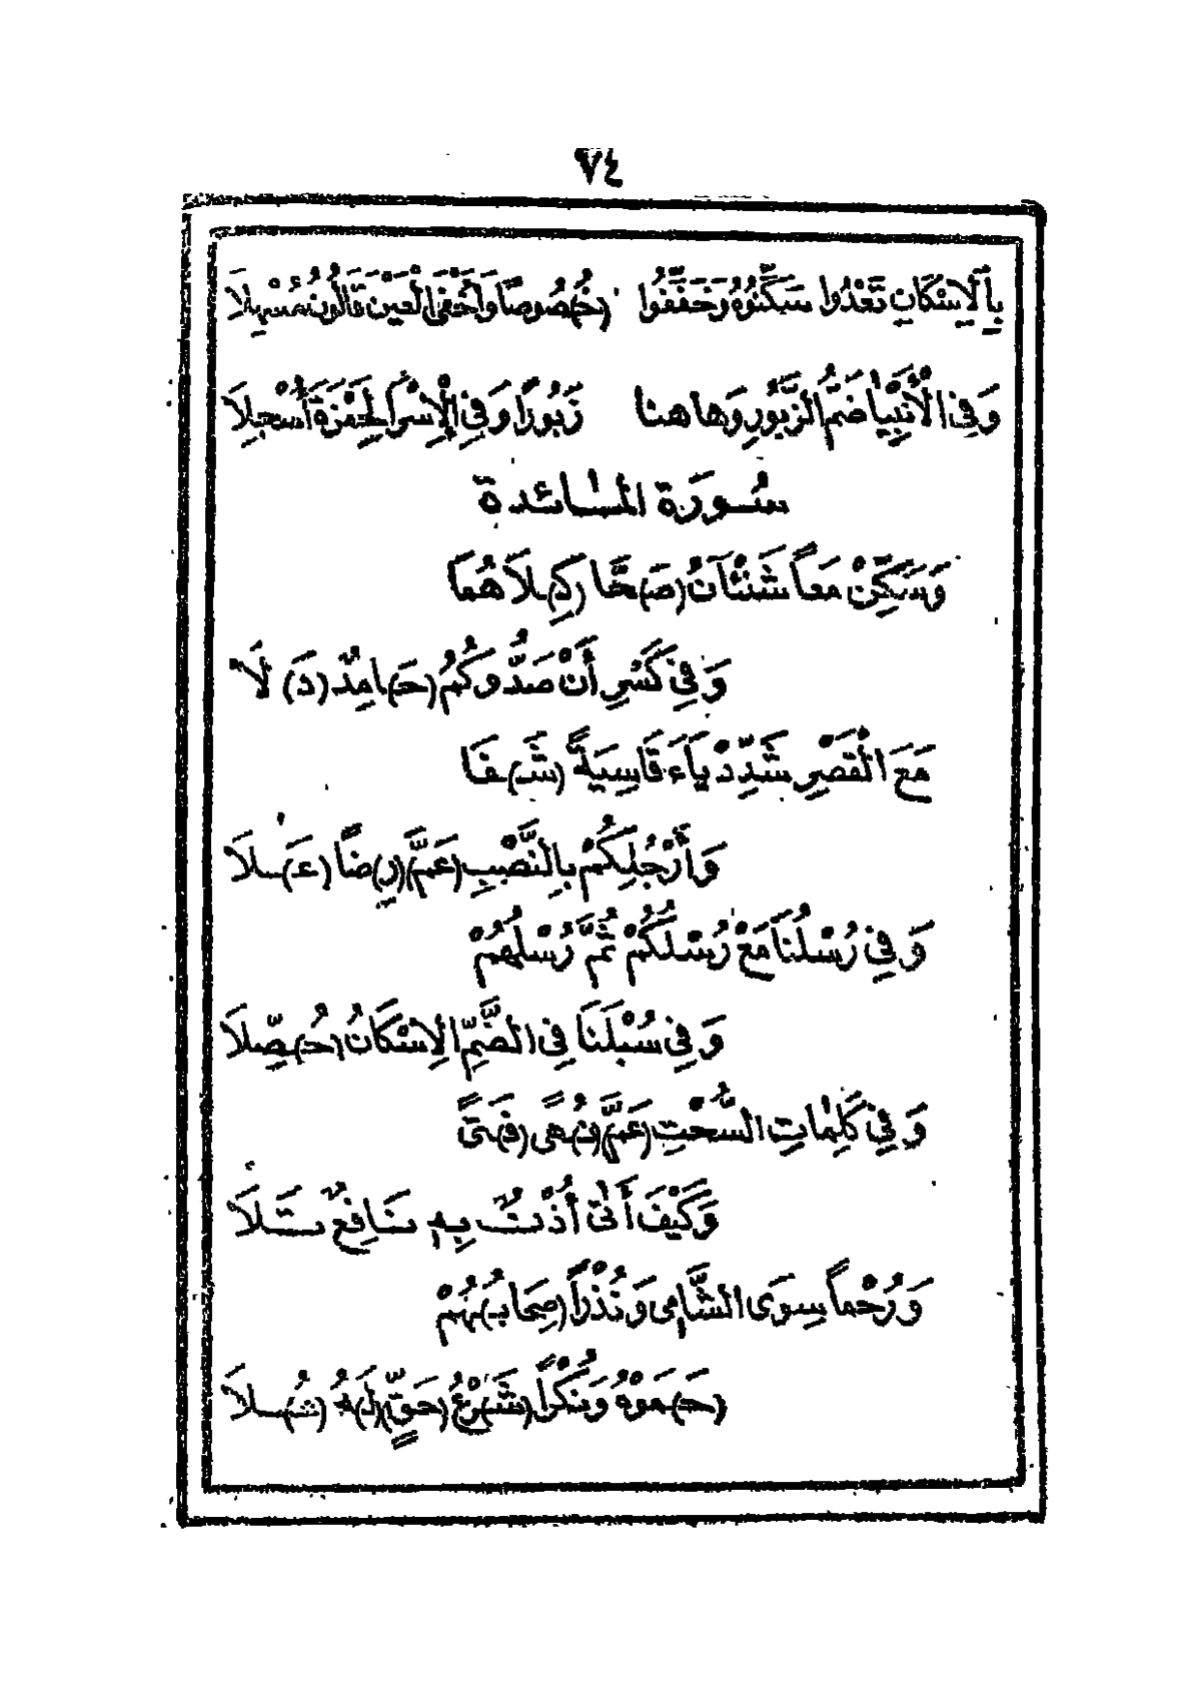 ٧٤
بِالْاِسْكَانِ تَعْدُوا سَكَّنُوهُ وَخَفَّفُوا (خُ)صُوصًا وَأَخْفَى الْعَيْنَ قَالُونُ مُسْهِلَا
وَفِي الْأَنْبِيَا ضَمُّ الزَّبُورِ وَهاهنا زَبُورًا وَفِي الْإِسْرَا لِحَمْزَةَ أُسْجِلَا
سُورَة المَائدة
وَسَكِّنْ مَعاً شَنْآنُ (صَ)حَّا (كِ)لَاهُمَا
وَفِي كَسْرِ أَنْ صَدُّوكُمُ (حَ)امِدٌ (دَ)لَا
مَعَ الْقَصْرِ شَدِّدْ يَاءَ قَاسِيَةً (شَ)فَا
وَأَرْجُلِكُمْ بِالنَّصْبِ (عَمَّ) (رِ)ضًا (عَ)لَا
وَفِي رُسْلُنَا مَعْ رُسْلُكُمْ ثُمَّ رُسْلُهُمْ
وَفِي سُبْلَنَا فِي الضَّمِّ الِاسْكَانُ (حُ)صِّلَا
وَفِي كَلِمَاتِ السُّحْتِ (عَمَّ) (نُ)هًى (فَ)تًى
وَكَيْفَ أَتَى أُذْنٌ بِهِ نَافِعٌ تَلَا
وَرُحْماً سِوَى الشَّامِي وَنُذْراً (صِحَابُ)هُمْ
(حَ)مَوْهُ وَنُكْراً (شَ)رْعُ (حَقٍّ) (لَ)هُ (عُ)لَا